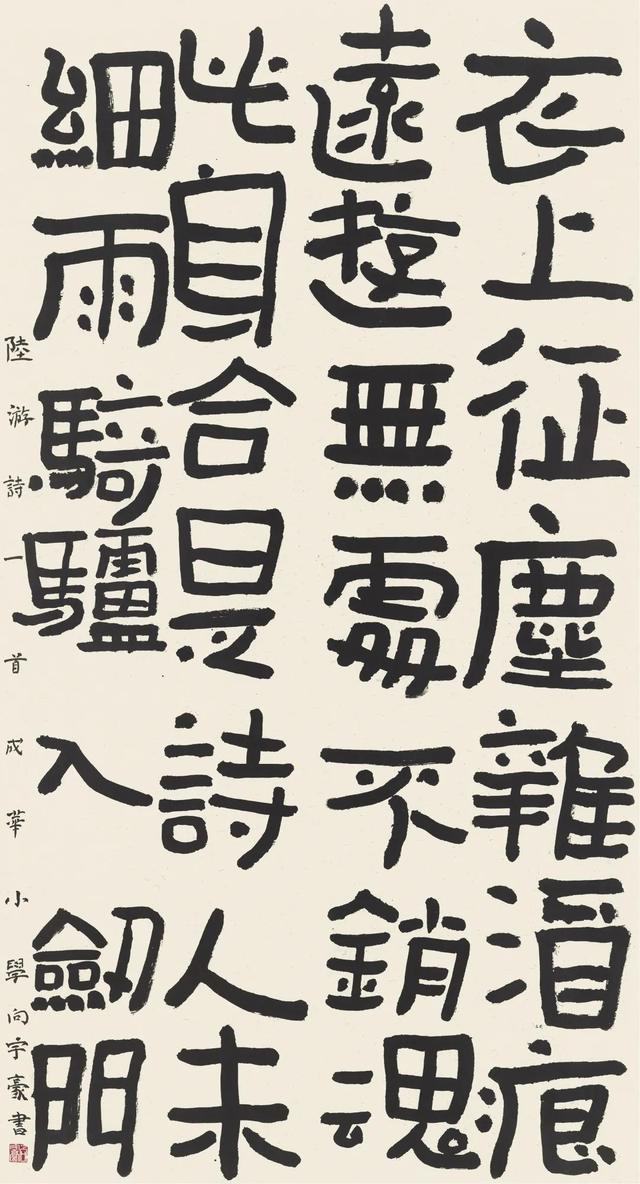 衣上征塵雜酒痕
遠遊無處不銷魂
此身合是詩人未
細雨騎驢入劔門
陸游詩一首成華小學向宇豪書